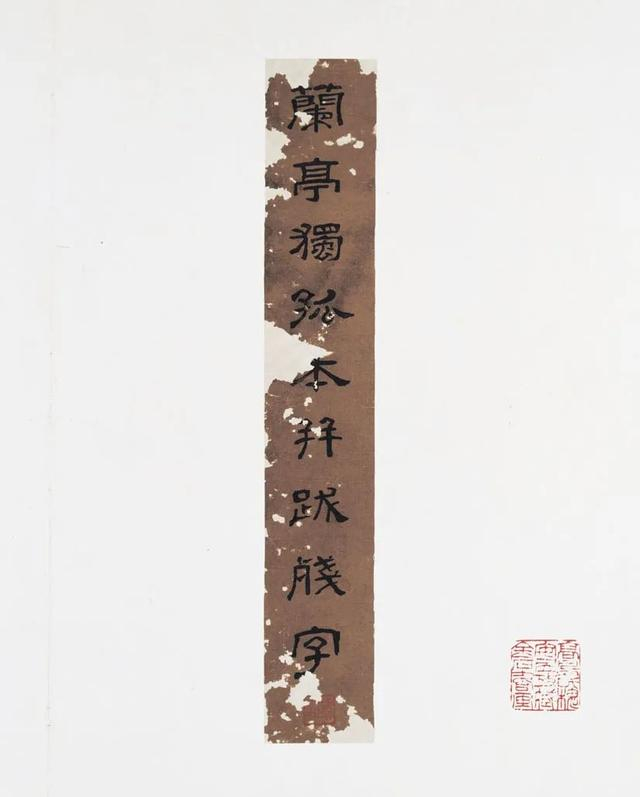 蘭亭獨孤本拜跋殘字